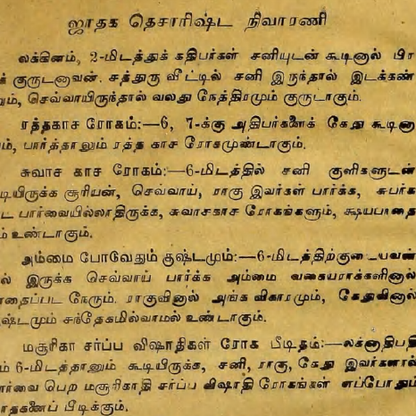 ஜாதக தெசாரிஷ்ட நிவாரணி
லக்கினம், 2-மிடத்துக் கதிபர்கள் சனியுடன் கூடினால் பிற
குருடனாவன். சத்துரு வீட்டில் சனி இருந்தால் இடக்கண்
ும், செவ்வாயிருந்தால் வலது நேத்திரமும் குருடாகும்.
ரத்தகாச ரோகம்:—6, 7-க்கு அதிபர்களைக் கேது கூடினா
ம், பார்த்தாலும் ரத்த காச ரோகமுண்டாகும்.
சுவாச காச ரோகம்:—6-மிடத்தில் சனி குளிகனுடன்
டியிருக்க சூரியன், செவ்வாய், ராகு இவர்கள் பார்க்க, சுபர்க
ட பார்வையில்லாதிருக்க, சுவாசகாச ரோகங்களும், க்ஷயபாதை
ம் உண்டாகும்.
அம்மை போவேதும் குஷ்டமும்:—6-மிடத்திற்குடையவன்
ல் இருக்க செவ்வாய் பார்க்க அம்மை வகையராக்களினால்
ாதைப்பட நேரும். ராகுவினால் அங்க விகாரமும், கேதுவினால்
ஷ்டமும் சந்தேகமில்லாமல் உண்டாகும்.
மசூரிகா சர்ப்ப விஷாதிகள் ரோக பீடிதம்:—லக்னாதிபதி
ம் 6-மிடத்தானும் கூடியிருக்க, சனி, ராகு, கேது இவர்களால்
ார்வை பெற மசூரிகாதி சர்ப்ப விஷாதி ரோகங்கள் எப்போதும்
ாதகனைப் பீடிக்கும்.